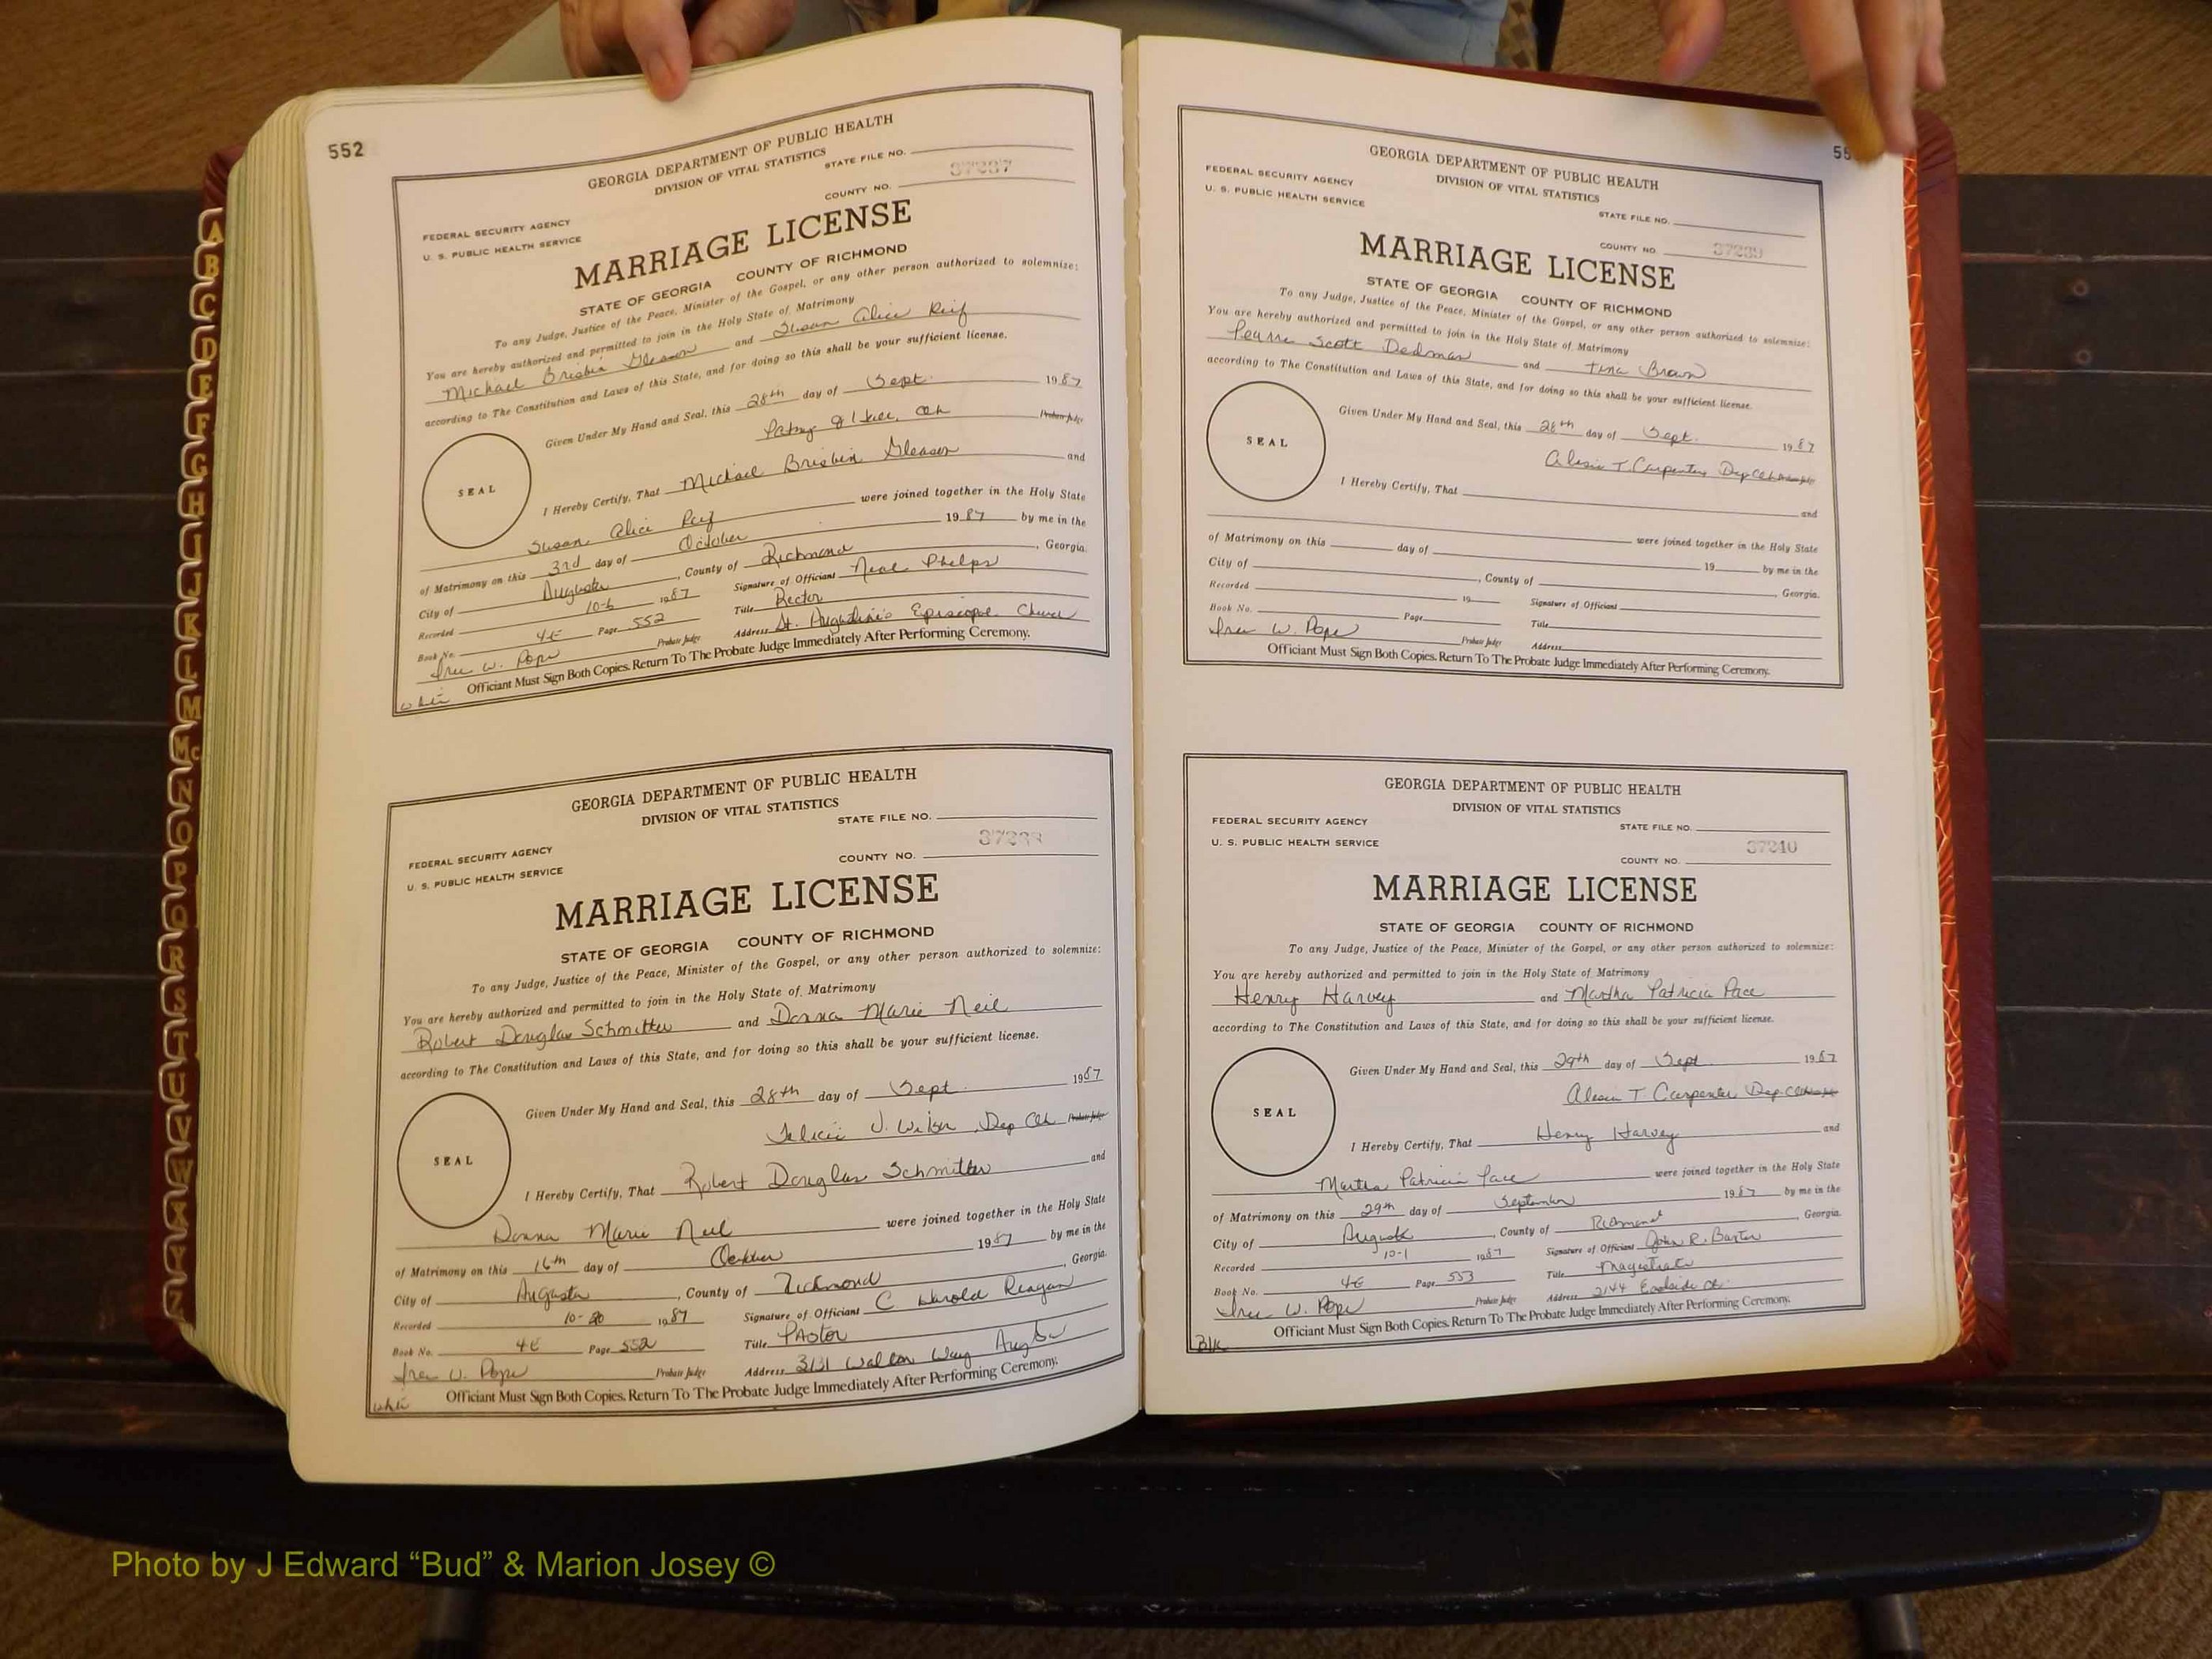 552
GEORGIA DEPARTMENT OF PUBLIC HEALTH
DIVISION OF VITAL STATISTICS
STATE FILE NO.
37237
COUNTY NO.
FEDERAL SECURITY AGENCY
U. S. PUBLIC HEALTH SERVICE
MARRIAGE LICENSE
STATE OF GEORGIA COUNTY OF RICHMOND
To any Judge, Justice of the Peace, Minister of the Gospel, or any other person authorized to solemnize:
You are hereby authorized and permitted to join in the Holy State of Matrimony
Michael Brisbin Gleason and Susan Alice Reif
according to The Constitution and Laws of this State, and for doing so this shall be your sufficient license.
Given Under My Hand and Seal, this 28th day of Sept. 1987
Probate Judge
SEAL
I Hereby Certify, That Michael Brisbin Gleason and
Susan Alice Reif were joined together in the Holy State
of Matrimony on this 3rd day of October 1987 by me in the
City of Augusta, County of Richmond, Georgia.
Recorded 10-6 1987 Signature of Officiant Neal Phelps
Book No. 4E Page 552 Title Rector
W. Pope Probate Judge Address St. Augustine's Episcopal Church
Officiant Must Sign Both Copies. Return To The Probate Judge Immediately After Performing Ceremony.
white
GEORGIA DEPARTMENT OF PUBLIC HEALTH
DIVISION OF VITAL STATISTICS
STATE FILE NO.
COUNTY NO.
FEDERAL SECURITY AGENCY
U. S. PUBLIC HEALTH SERVICE
MARRIAGE LICENSE
STATE OF GEORGIA COUNTY OF RICHMOND
To any Judge, Justice of the Peace, Minister of the Gospel, or any other person authorized to solemnize:
You are hereby authorized and permitted to join in the Holy State of Matrimony
Robert Douglas Schmitter and Donna Marie Neil
according to The Constitution and Laws of this State, and for doing so this shall be your sufficient license.
Given Under My Hand and Seal, this 28th day of Sept. 1987
Felicia J. Dep Clk Probate Judge
SEAL
I Hereby Certify, That Robert Douglas Schmitter and
Donna Marie Neil were joined together in the Holy State
of Matrimony on this 16th day of October 1987 by me in the
City of Augusta, County of Richmond, Georgia.
Recorded 10-20 1987 Signature of Officiant C Harold Reagan
Book No. 4E Page 552 Title Pastor
W. Pope Probate Judge Address 3131 Walton Way Augusta
Officiant Must Sign Both Copies. Return To The Probate Judge Immediately After Performing Ceremony.
white
55
GEORGIA DEPARTMENT OF PUBLIC HEALTH
DIVISION OF VITAL STATISTICS
FEDERAL SECURITY AGENCY
U. S. PUBLIC HEALTH SERVICE
STATE FILE NO.
COUNTY NO. 37239
MARRIAGE LICENSE
STATE OF GEORGIA COUNTY OF RICHMOND
To any Judge, Justice of the Peace, Minister of the Gospel, or any other person authorized to solemnize:
You are hereby authorized and permitted to join in the Holy State of Matrimony
Scott Dedman and Tina Brown
according to The Constitution and Laws of this State, and for doing so this shall be your sufficient license.
Given Under My Hand and Seal, this 28th day of Sept. 1987
T. Carpenter, Dep Clk Probate Judge
SEAL
I Hereby Certify, That
and
were joined together in the Holy State
of Matrimony on this day of 19 by me in the
City of, County of, Georgia.
Recorded 19 Signature of Officiant
Book No. Page Title
W. Pope Probate Judge Address
Officiant Must Sign Both Copies. Return To The Probate Judge Immediately After Performing Ceremony.
GEORGIA DEPARTMENT OF PUBLIC HEALTH
DIVISION OF VITAL STATISTICS
FEDERAL SECURITY AGENCY
U. S. PUBLIC HEALTH SERVICE
STATE FILE NO.
37240
COUNTY NO.
MARRIAGE LICENSE
STATE OF GEORGIA COUNTY OF RICHMOND
To any Judge, Justice of the Peace, Minister of the Gospel, or any other person authorized to solemnize:
You are hereby authorized and permitted to join in the Holy State of Matrimony
Henry Harvey and Martha Patricia Pace
according to The Constitution and Laws of this State, and for doing so this shall be your sufficient license.
Given Under My Hand and Seal, this 29th day of Sept. 1987
T Carpenter Dep. Clk Probate Judge
SEAL
I Hereby Certify, That Henry Harvey and
Martha Patricia Pace were joined together in the Holy State
of Matrimony on this 29th day of September 1987 by me in the
City of Augusta, County of Richmond, Georgia.
Recorded 10-1 1987 Signature of Officiant John R. Baxter
Book No. 4E Page 553 Title Magistrate
W. Pope Probate Judge Address 2144
Officiant Must Sign Both Copies. Return To The Probate Judge Immediately After Performing Ceremony.
Blk
A
B
C
D
E
F
G
H
I
J
K
L
M
Mc
N
O
P
Q
R
S
T
U
V
W
X
Y
Z
Photo by J Edward “Bud” & Marion Josey ©